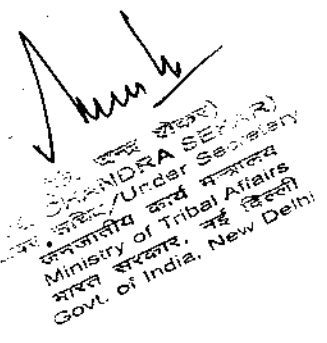 चन्द्र शेखर)
CHANDRA SEKAR)
सचिव/Under Secretary
जनजातीय कार्य मन्त्रालय
Ministry of Tribal Affairs
भारत सरकार, नई दिल्ली
Govt. of India, New Delhi